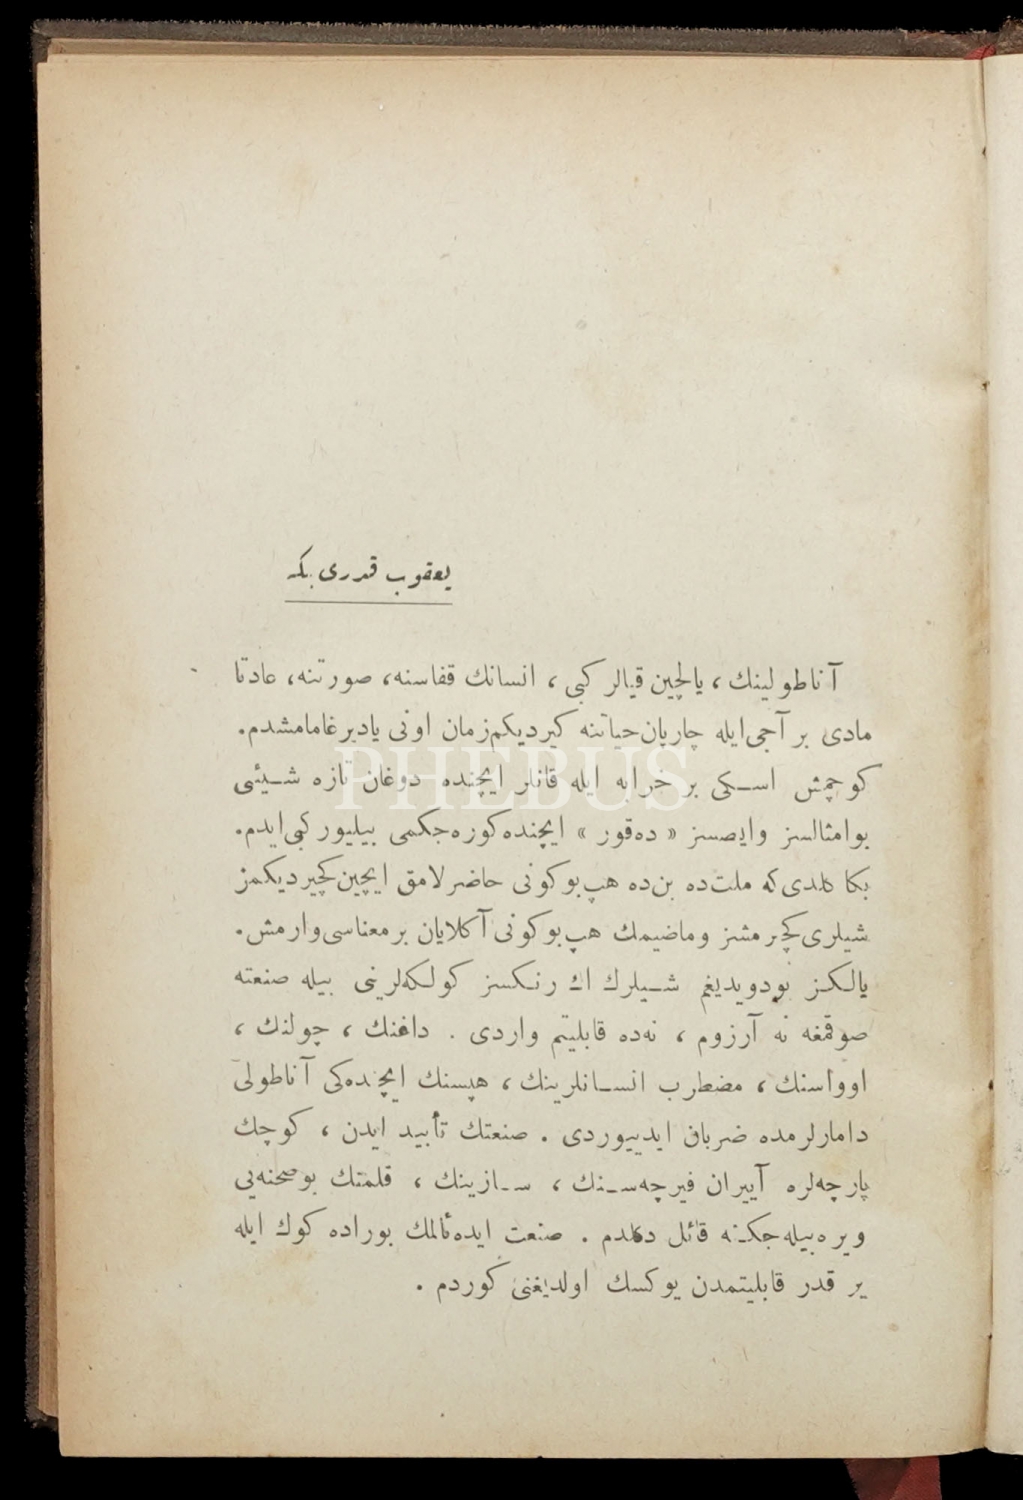 يعقوب قدری بكه
آناطولینك، یالچین قیالر کبی، انسانك قفاسنه، صورتنه، عادتا
مادی بر آجی‌ایله چارپان‌حیاتنه کیردیکم‌زمان اونی یادیرغامامشدم.
کوچمش اسکی بر خرابه ایله قانلر ایچنده دوغان تازه شیئی
بوامثالسز وایصسز «ده‌قور» ایچنده‌کوره‌جکمی بیلیور کبی‌ایدم.
بکا کلدی‌که ملت‌ده بن‌ده هپ‌بوکونی حاضرلامق ایچین‌کچیردیکمز
شیلری‌کچیرمشز وماضیمك هپ‌بوکونی آکلایان برمعناسی‌وارمش.
یالکز بودویدیغم شیلرك اك رنکسز کولکه‌لرینی بیله صنعته
صوقمغه نه آرزوم، نه‌ده قابلیتم واردی. داغنك، چولنك،
اوواسنك، مضطرب انسانلرینك، هپسنك ایچنده‌کی آناطولی
دامارلرمده ضربان ایدییوردی. صنعتك تأیید ایدن، کوچك
پارچه‌لره آییران فیرچه‌سنك، سازینك، قلمنك بوصحنه‌یی
ویره‌بیله‌جکنه قائل دکلدم. صنعت ایده‌ئالمك بوراده کوك ایله
یر قدر قابلیتمدن یوکسك اولدیغنی کوردم.
PHEBUS